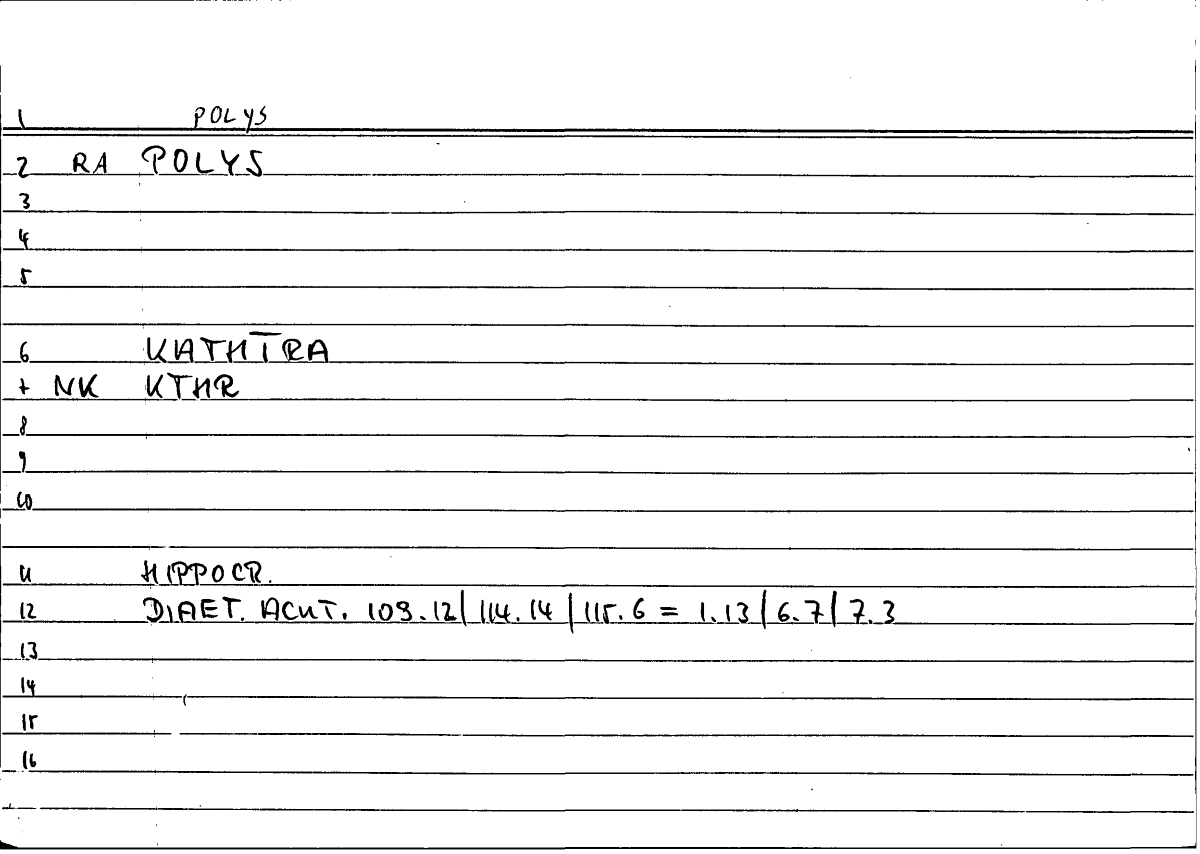 1 POLYS
2 RA POLYS
3
4
5
6 KATHĪRA
7 NK KTHR
8
9
10
11 HIPPOCR.
12 DIAET. ACUT. 109.12 | 114.14 | 115.6 = 1.13 | 6.7 | 7.3
13
14
15
16